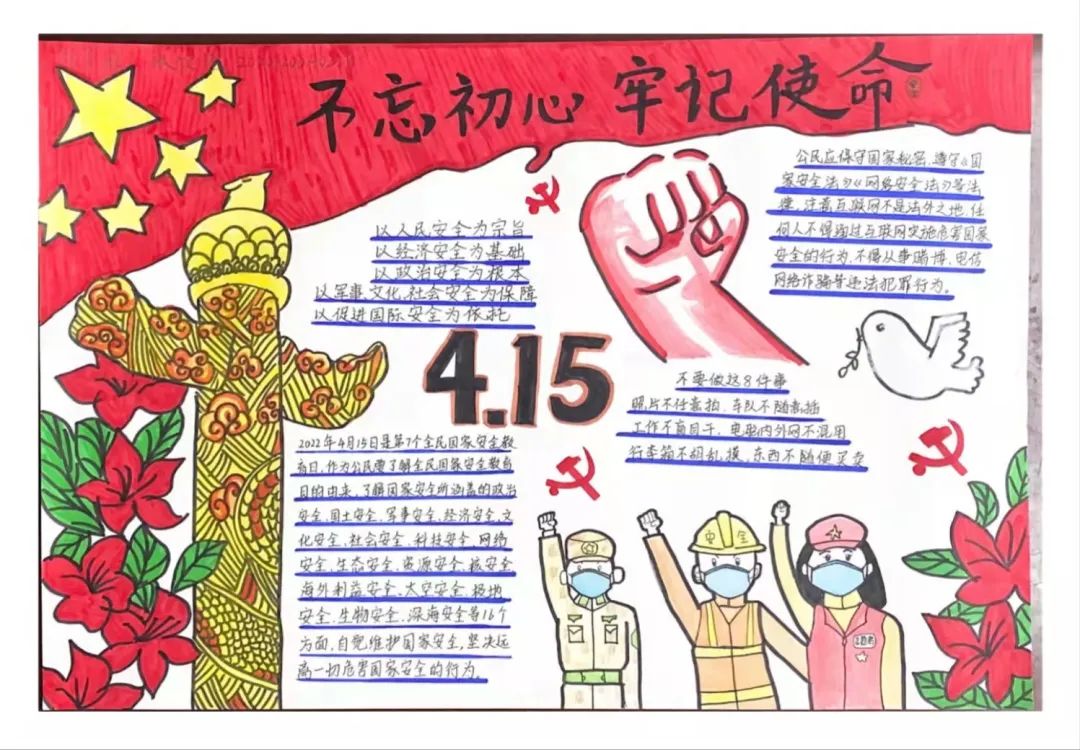 不忘初心 牢记使命
以人民安全为宗旨
以经济安全为基础
以政治安全为根本
以军事、文化、社会安全为保障
以促进国际安全为依托
4.15
公民应保守国家秘密，遵守《国
家安全法》《网络安全法》等法
律，注意互联网不是法外之地，任
何人不得通过互联网实施危害国家
安全的行为，不得从事赌博、电信
网络诈骗等违法犯罪行为。
不要做这8件事
照片不任意拍、车队不随意插
工作不盲目干，电脑内外网不混用
行李箱不胡乱摸、东西不随便买卖
2022年4月15日是第7个全民国家安全教
育日，作为公民要了解全民国家安全教育
日的由来，了解国家安全所涵盖的政治
安全、国土安全、军事安全、经济安全、文
化安全、社会安全、科技安全、网络
安全、生态安全、资源安全、核安全
海外利益安全、太空安全、极地
安全、生物安全、深海安全等16个
方面，自觉维护国家安全，坚决远
离一切危害国家安全的行为。
安 全